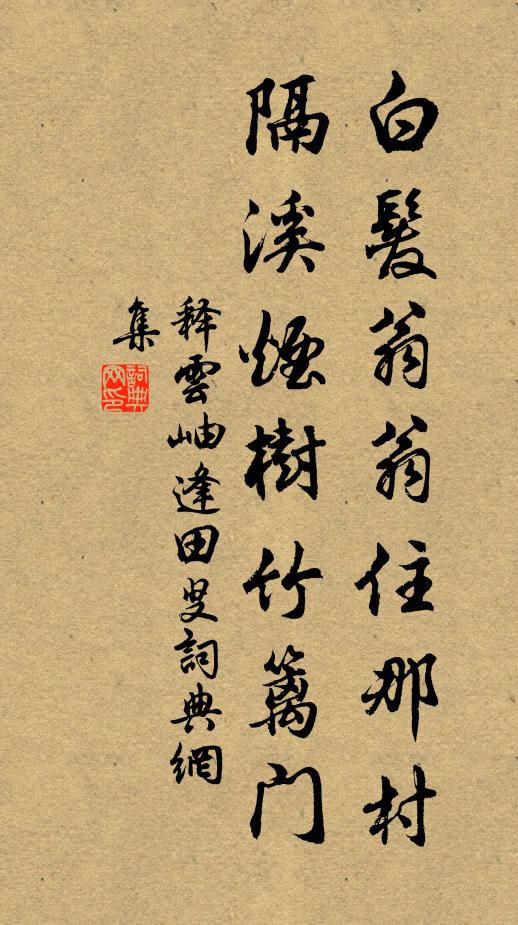 白髮翁翁住那村
隔溪煙樹竹篱門
释雲岫逢田叟詞典網
集
詞典网印